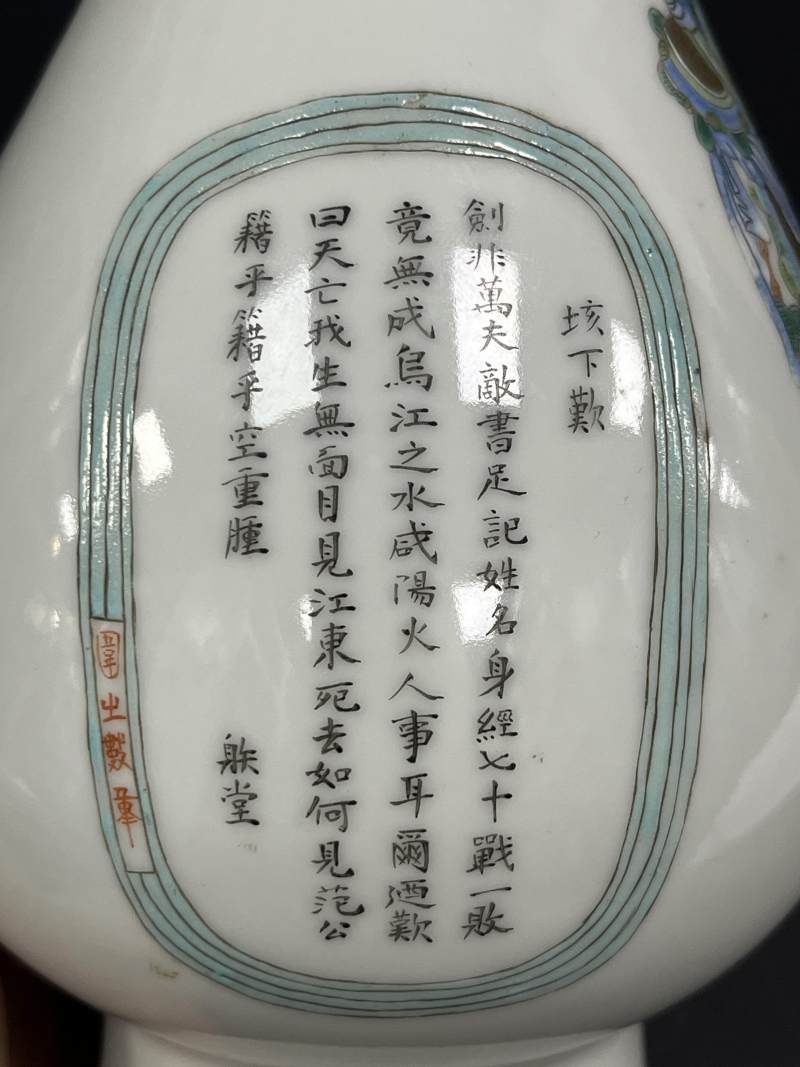 垓下歎
劍非萬夫敵書足記姓名身經七十戰一敗
竟無成烏江之水咸陽火人事耳爾迺歎
曰天亡我生無面目見江東死去如何見范公
籍乎籍乎空重瞳
躲堂